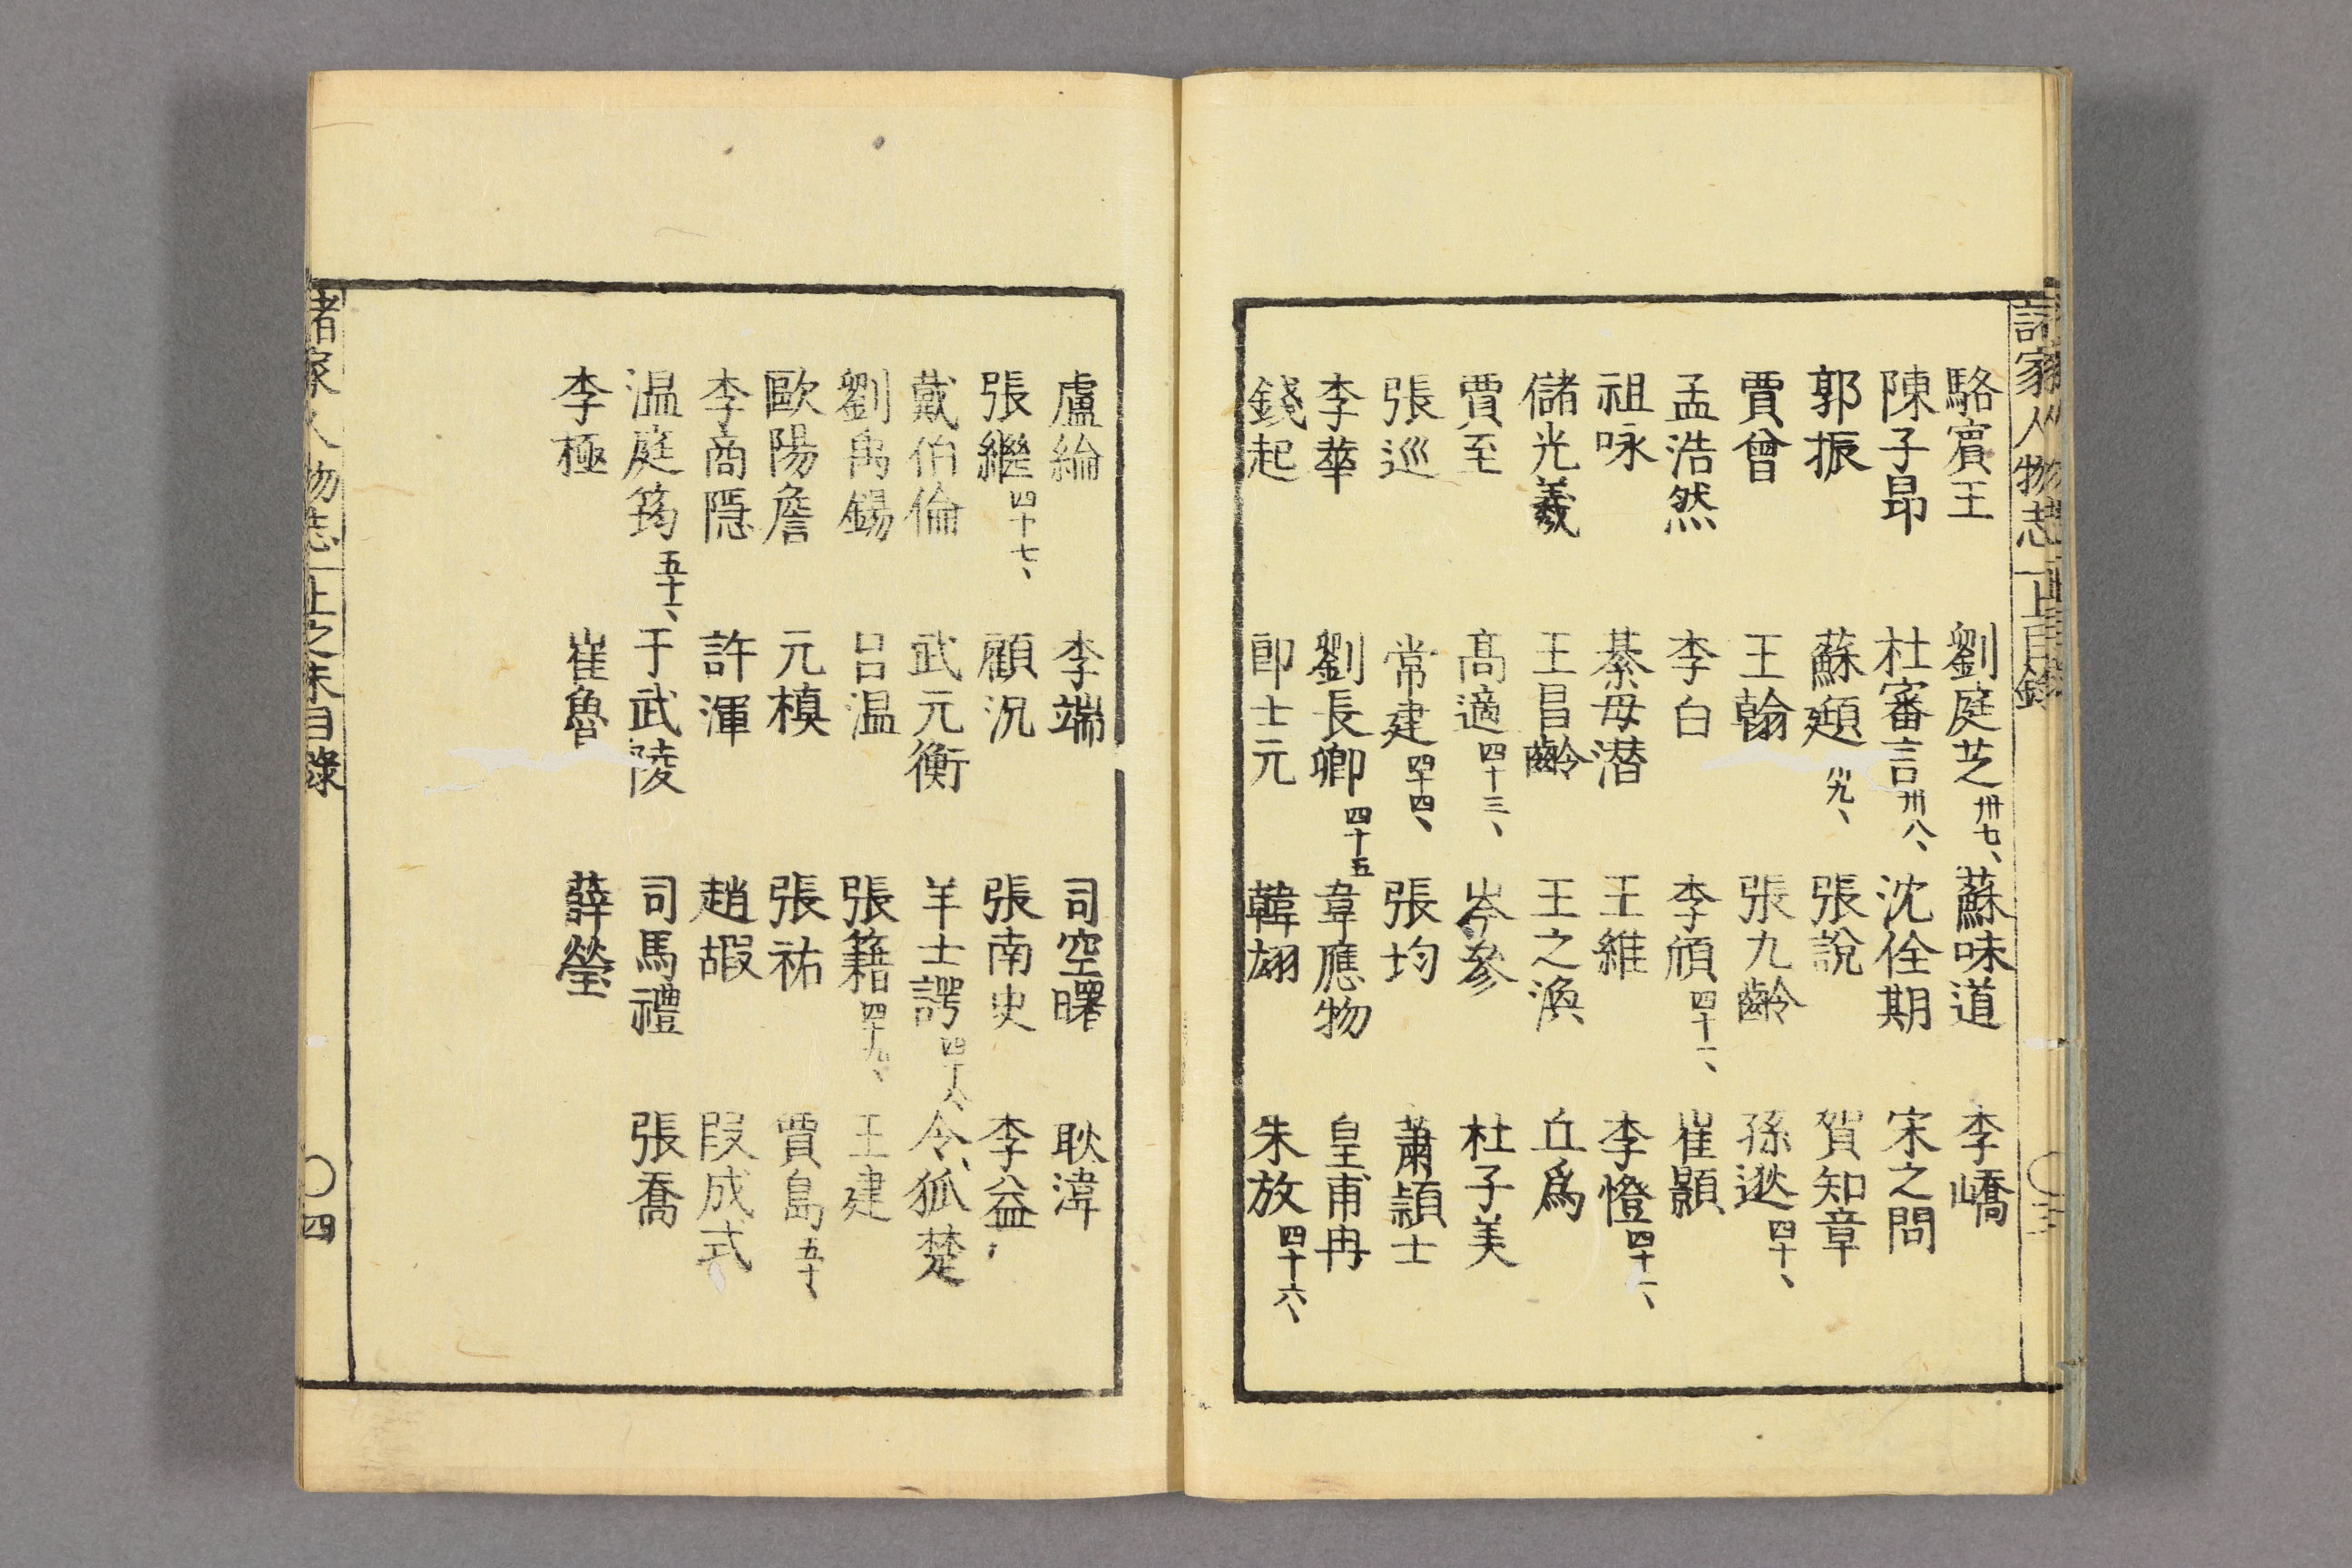 諸家人物志 上目錄 〇三
駱賓王 劉庭芝 卅七、 蘇味道 李嶠
陳子昂 杜審言 卅八、 沈佺期 宋之問
郭振 蘇頲 卅九、 張說 賀知章
賈曾 王翰 張九齡 孫逖 四十、
孟浩然 李白 李頎 四十一、 崔顥
祖咏 綦毋潜 王維 李憕 四十二、
儲光羲 王昌齡 王之渙 丘爲
賈至 高適 四十三、 岑參 杜子美
張巡 常建 四十四、 張均 蕭頴士
李華 劉長卿 四十五 韋應物 皇甫冉
錢起 郎士元 韓翃 朱放 四十六、
盧綸 李端 司空曙 耿湋
張繼 四十七、 顧況 張南史 李益
戴伯倫 武元衡 羊士諤 四十八、 令狐楚
劉禹錫 呂温 張籍 四十九、 王建
歐陽詹 元稹 張祐 賈島 五十、
李商隱 許渾 趙嘏 段成式
温庭筠 五十一、 于武陵 司馬禮 張喬
李極 崔魯 薛瑩
諸家人物志 上之末目錄 〇四